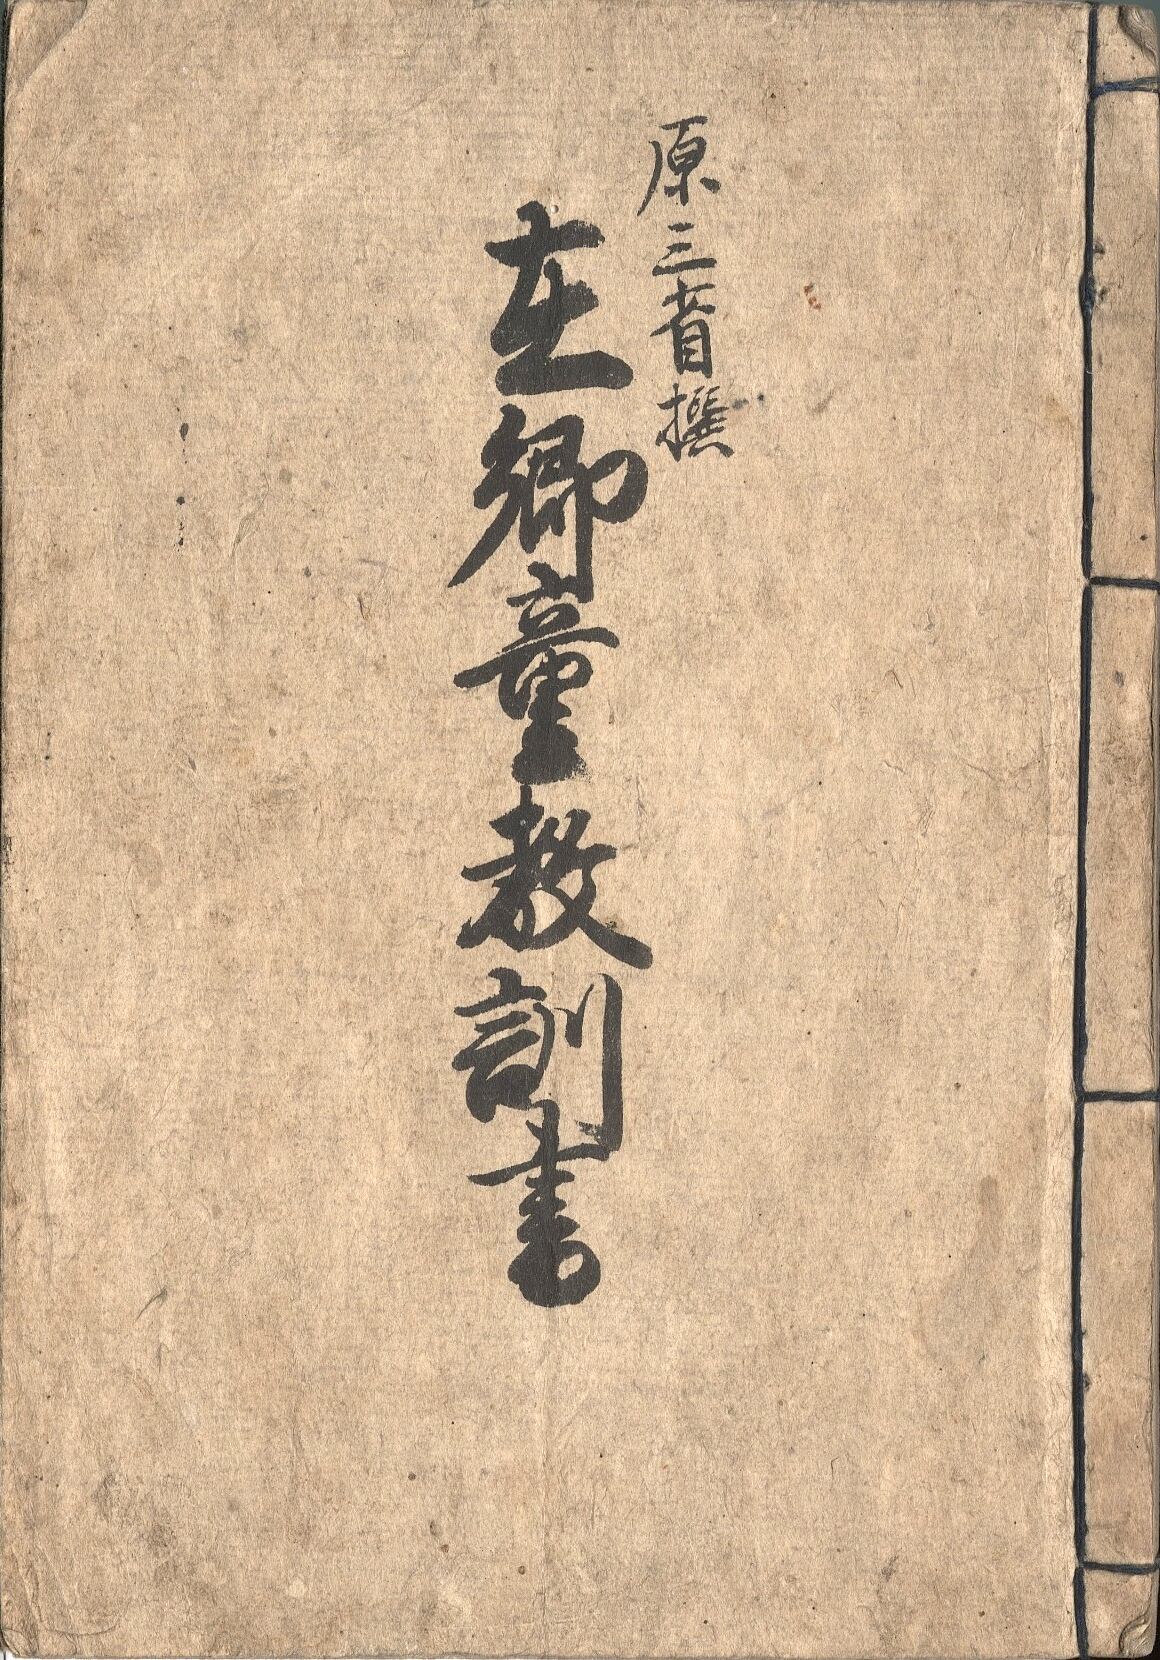 原三省撰
在郷童教訓書